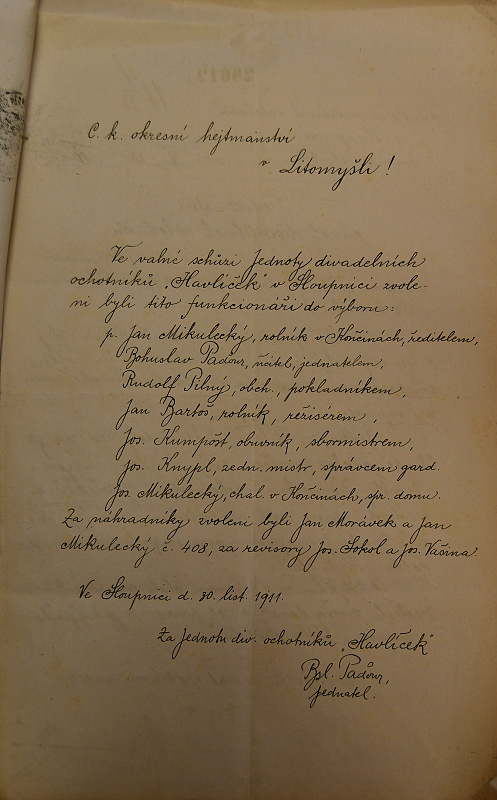 C. k. okresní hejtmanství
v Litomyšli!
Ve valné schůzi Jednoty divadelních
ochotníků „Havlíček" v Sloupnici zvole-
ni byli tito funkcionáři do výboru:
p. Jan Mikulecký, rolník v Končinách, ředitelem,
Bohuslav Padour, učitel, jednatelem,
Rudolf Pilný, obch., pokladníkem,
Jan Bartoš, rolník, režisérem,
Jos. Kumpošt, obuvník, sbormistrem,
Jos. Knypl, zedn. mistr, správcem gard.
Jos. Mikulecký, chal. v Končinách, spr. domu.
Za náhradníky zvoleni byli Jan Morávek a Jan
Mikulecký č. 408, za revisory Jos. Sokol a Jos. Vašina.
Ve Sloupnici d. 30. list. 1911.
Za Jednotu div. ochotníků „Havlíček"
Bsl. Padour,
jednatel.